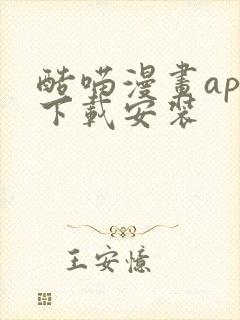 酷喵漫畫ap
下載安裝
王安憶